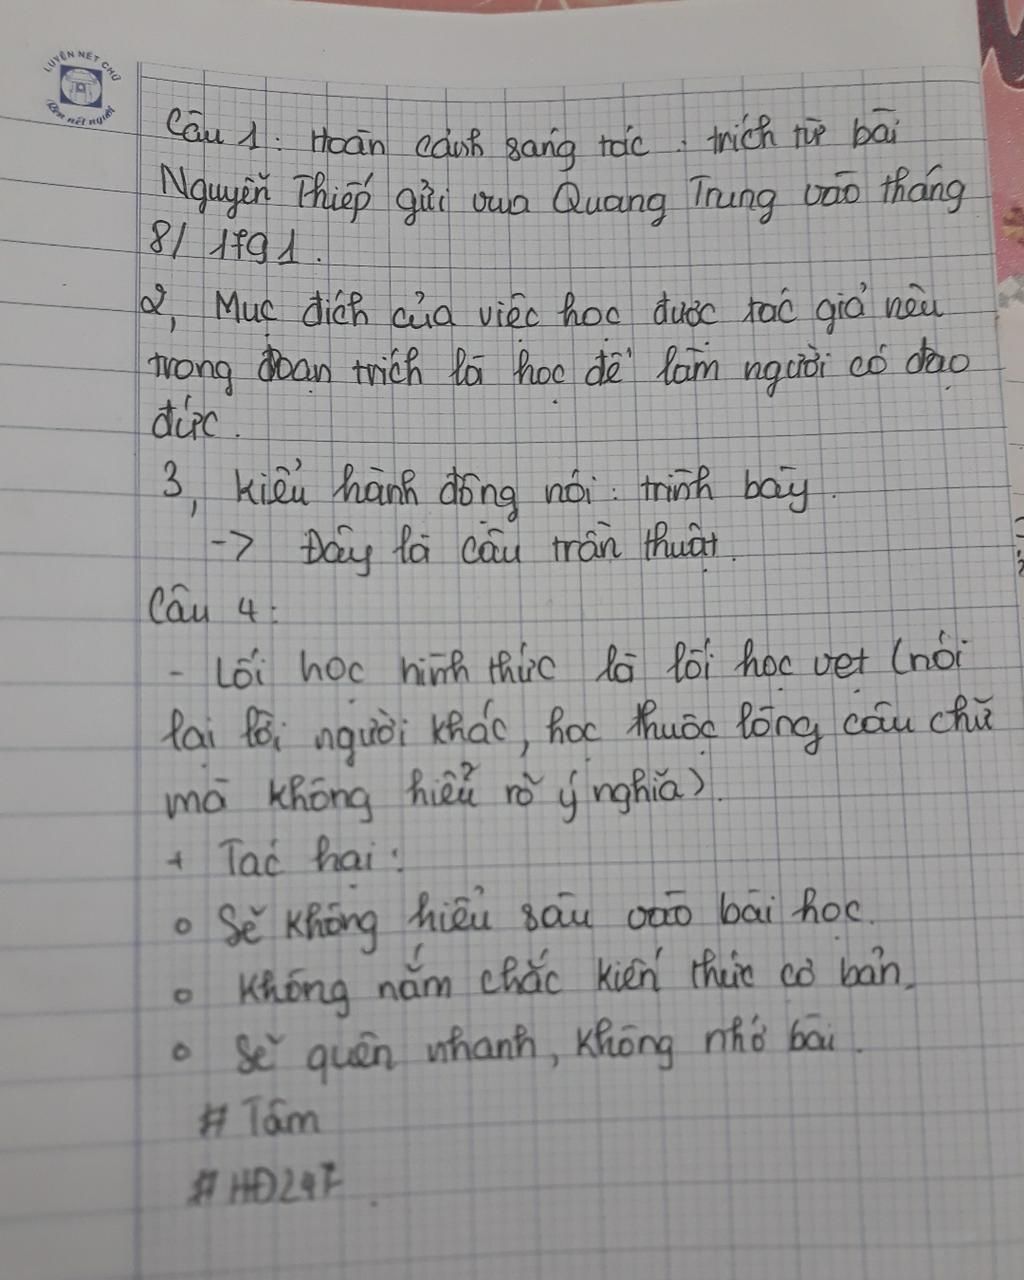 LUYỆN NÉT CHỮ
Rèn nết người
Câu 1: Hoàn cảnh sáng tác: trích từ bài
Nguyễn Thiếp gửi vua Quang Trung vào tháng
8/ 1791.
2, Mục đích của việc học được tác giả nêu
trong đoạn trích là học để làm người có đạo
đức.
3, Kiểu hành động nói: trình bày.
-> Đây là câu trần thuật.
Câu 4:
- Lối học hình thức là lối học vẹt (nói
lại lời người khác, học thuộc lòng câu chữ
mà không hiểu rõ ý nghĩa).
+ Tác hại:
o Sẽ không hiểu sâu vào bài học.
o Không nắm chắc kiến thức cơ bản.
o Sẽ quên nhanh, không nhớ bài.
# Tâm
# HĐ247